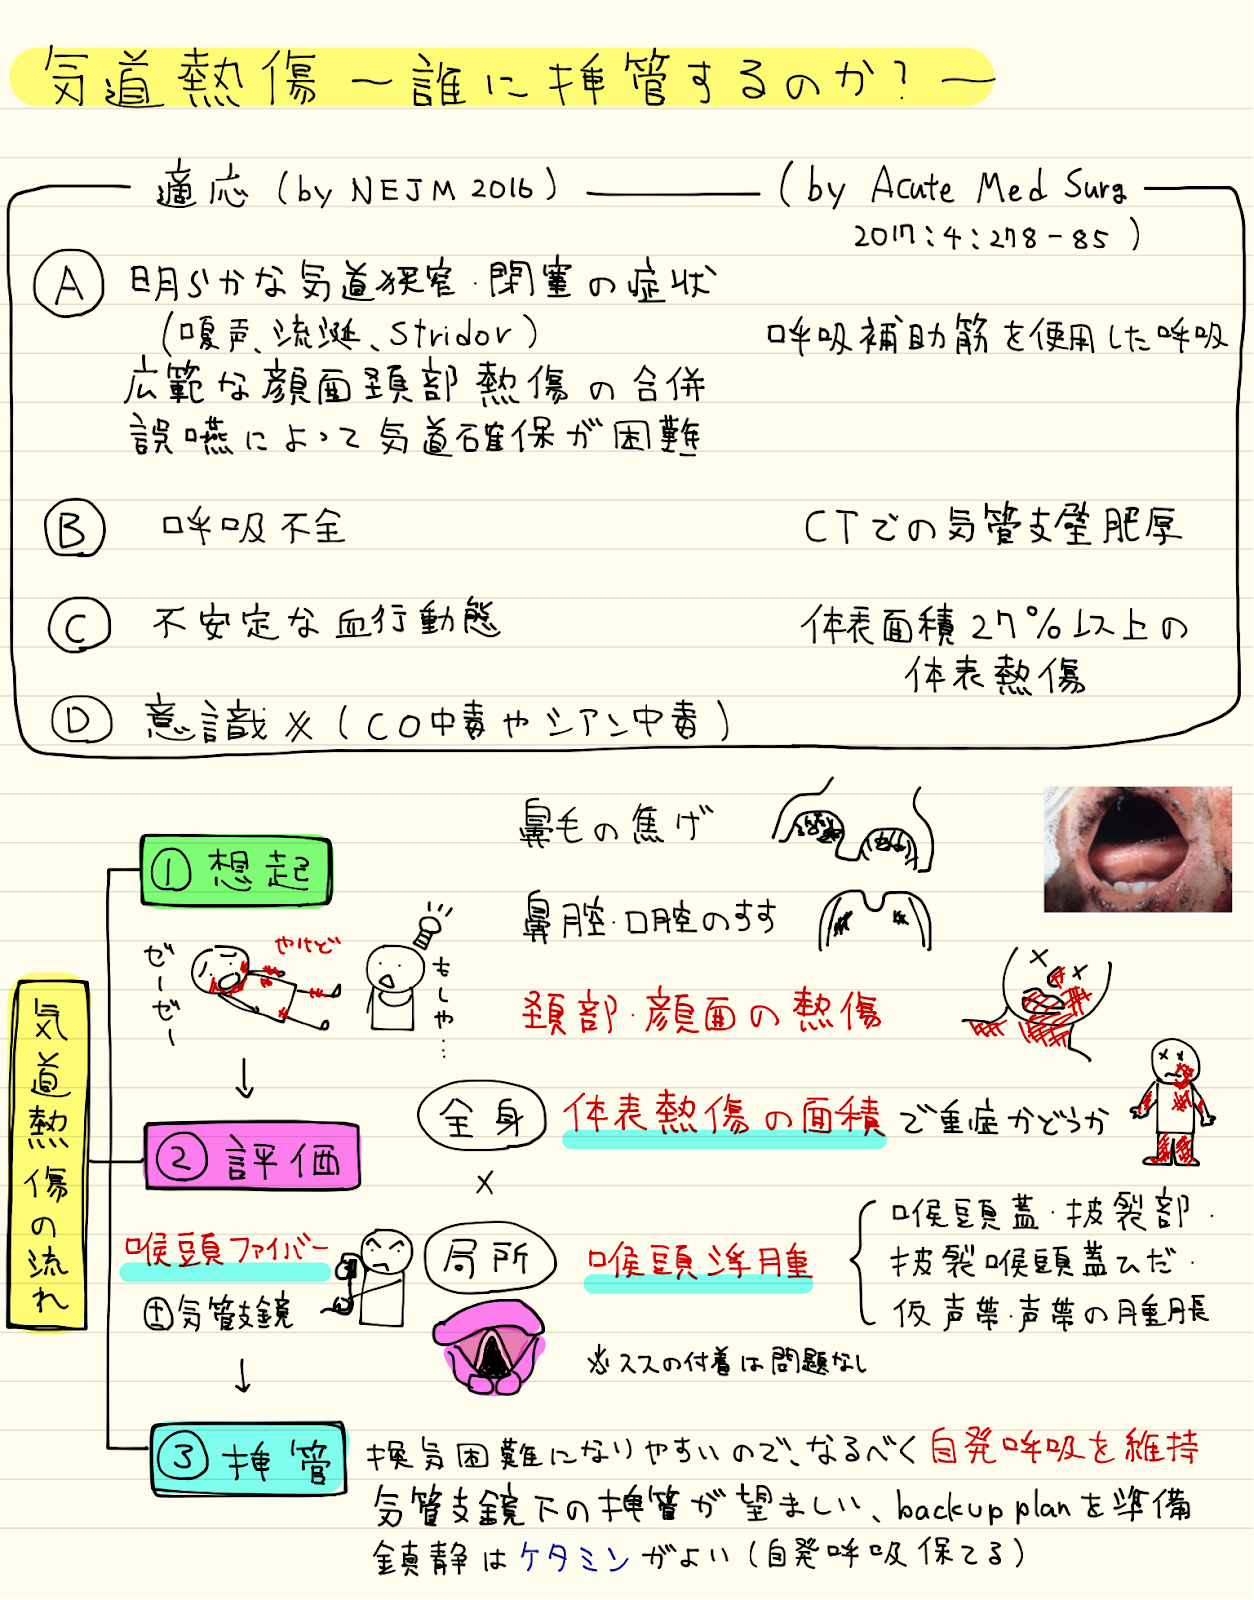 気道熱傷 〜誰に挿管するのか?〜
適応 (by NEJM 2016)
(by Acute Med Surg
2017:4:278-85)
Ⓐ 明らかな気道狭窄・閉塞の症状
(嗄声、流涎、Stridor)
呼吸補助筋を使用した呼吸
広範な顔面頚部熱傷の合併
誤嚥によって気道確保が困難
Ⓑ 呼吸不全
CTでの気管支壁肥厚
Ⓒ 不安定な血行動態
体表面積27%以上の
体表熱傷
Ⓓ 意識✕(CO中毒やシアン中毒)
気道熱傷の流れ
①想起
鼻毛の焦げ
鼻腔・口腔のすす
頚部・顔面の熱傷
ゼーゼー
やけど
もしや…
↓
②評価
全身
体表熱傷の面積で重症かどうか
×
喉頭ファイバー
±気管支鏡
局所
喉頭浮腫
喉頭蓋・披裂部・
披裂喉頭蓋ひだ・
仮声帯・声帯の腫脹
※ススの付着は問題なし
↓
③挿管
換気困難になりやすいので、なるべく自発呼吸を維持
気管支鏡下の挿管が望ましい、backup planを準備
鎮静はケタミンがよい(自発呼吸保てる)